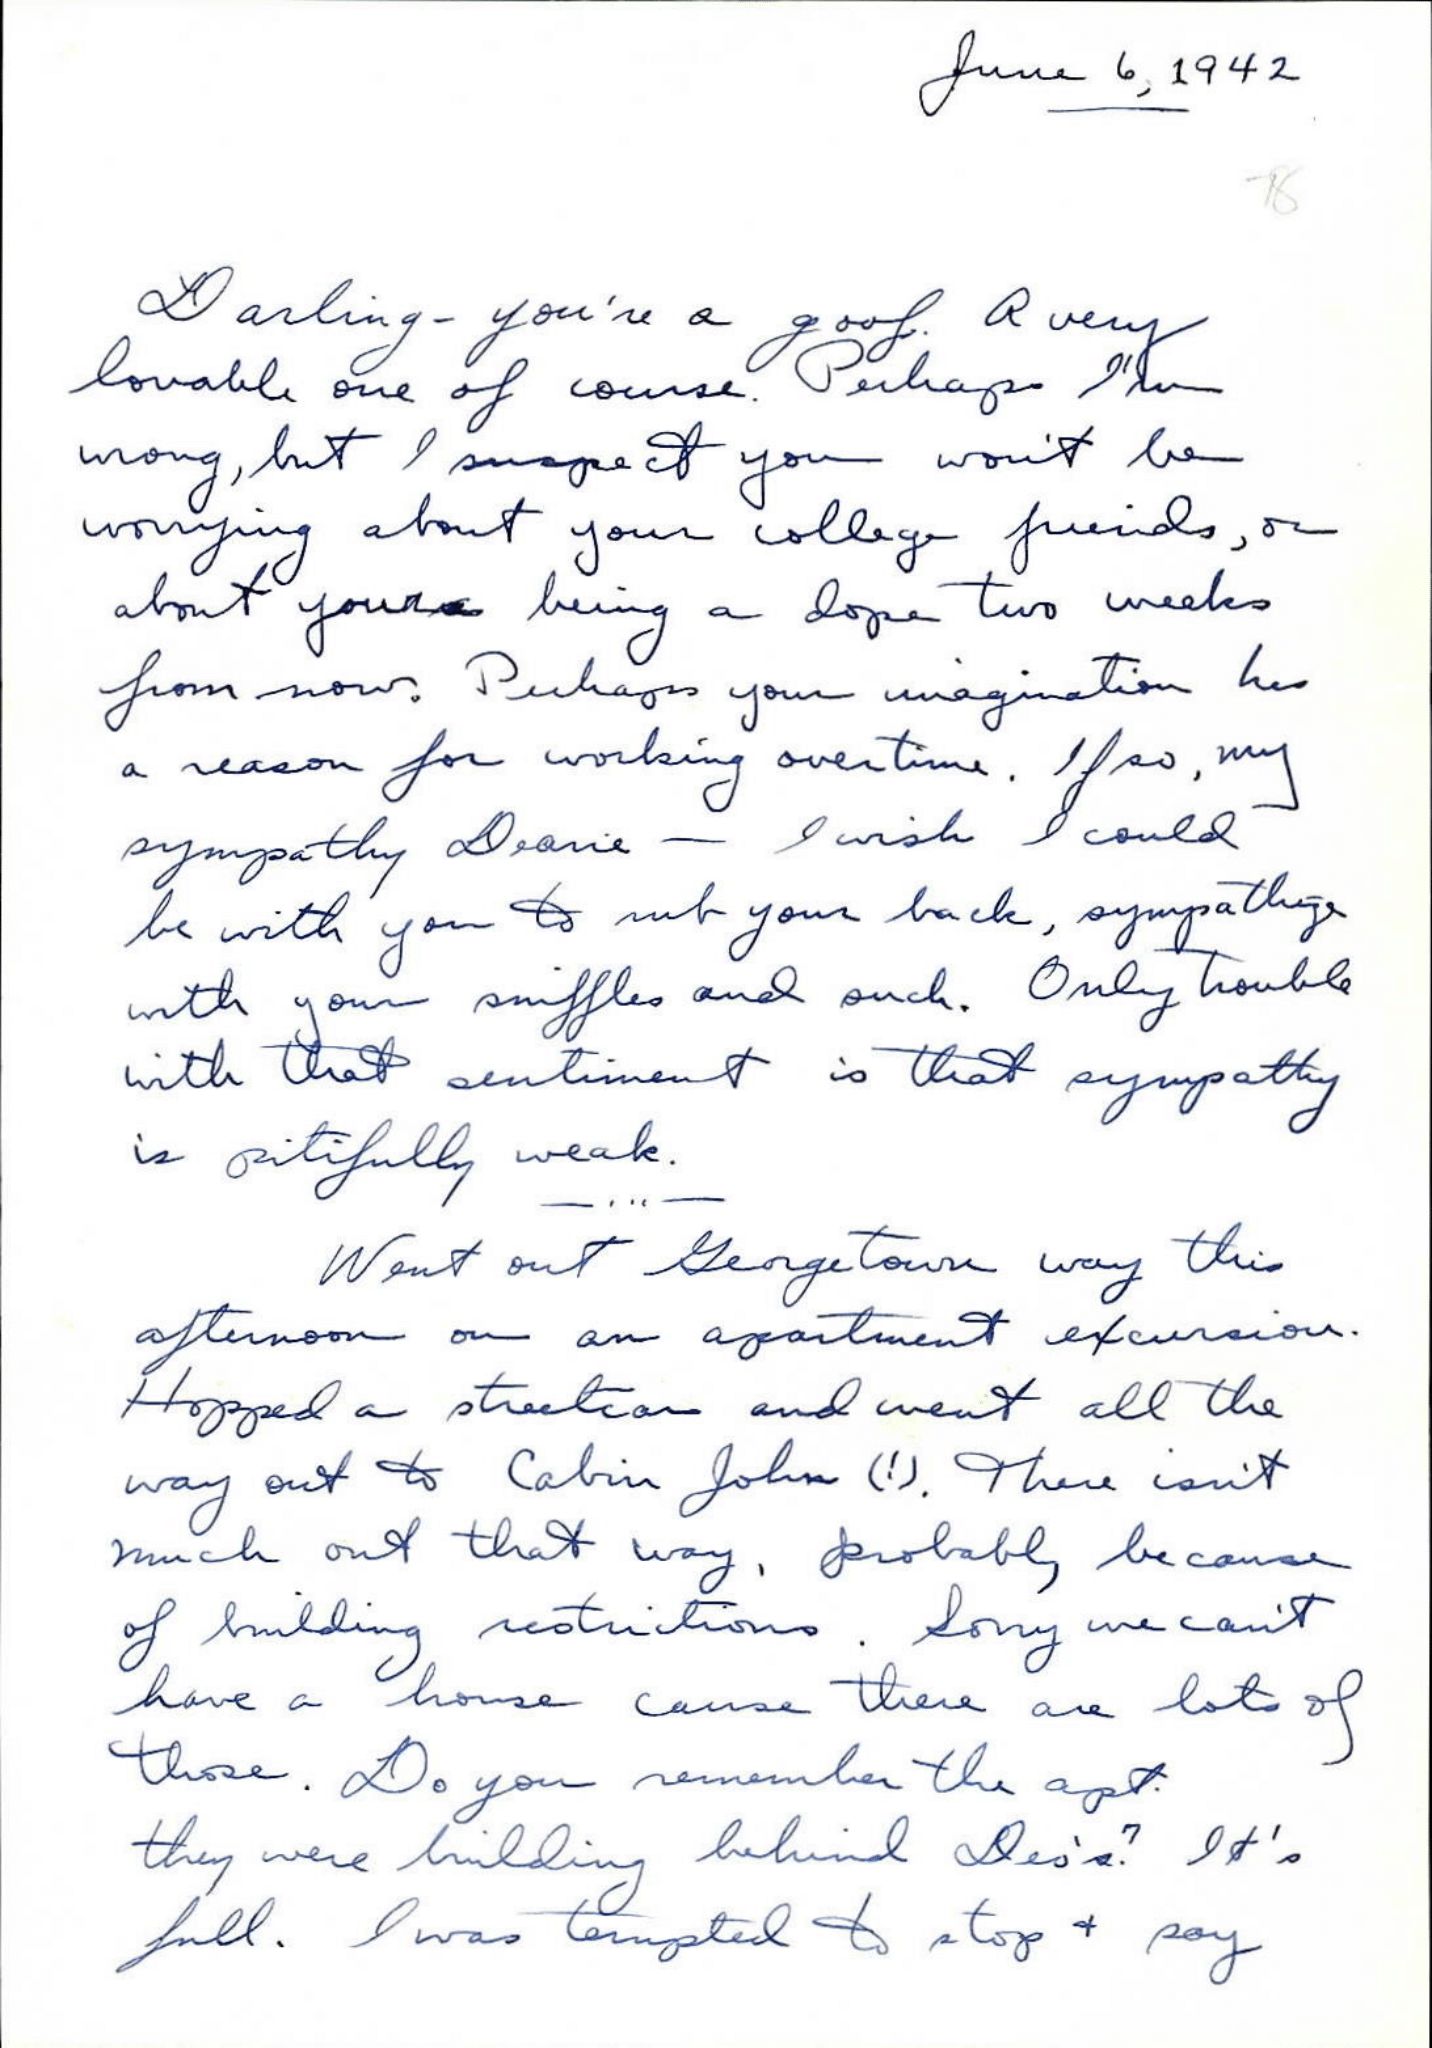 June 6, 1942
78
Darling - you're a goof. A very
lovable one of course. Perhaps I'm
wrong, but I suspect you won't be
worrying about your college friends, or
about your being a dope two weeks
from now. Perhaps your imagination has
a reason for working overtime. If so, my
sympathy Dearie — I wish I could
be with you to rub your back, sympathize
with your sniffles and such. Only trouble
with that sentiment is that sympathy
is pitifully weak.
— ... —
Went out Georgetown way this
afternoon on an apartment excursion.
Hopped a streetcar and went all the
way out to Cabin John (!). There isn't
much out that way, probably because
of building restrictions. Sorry we can't
have a house cause there are lots of
those. Do you remember the apt.
they were building behind Des's? It's
full. I was tempted to stop + say